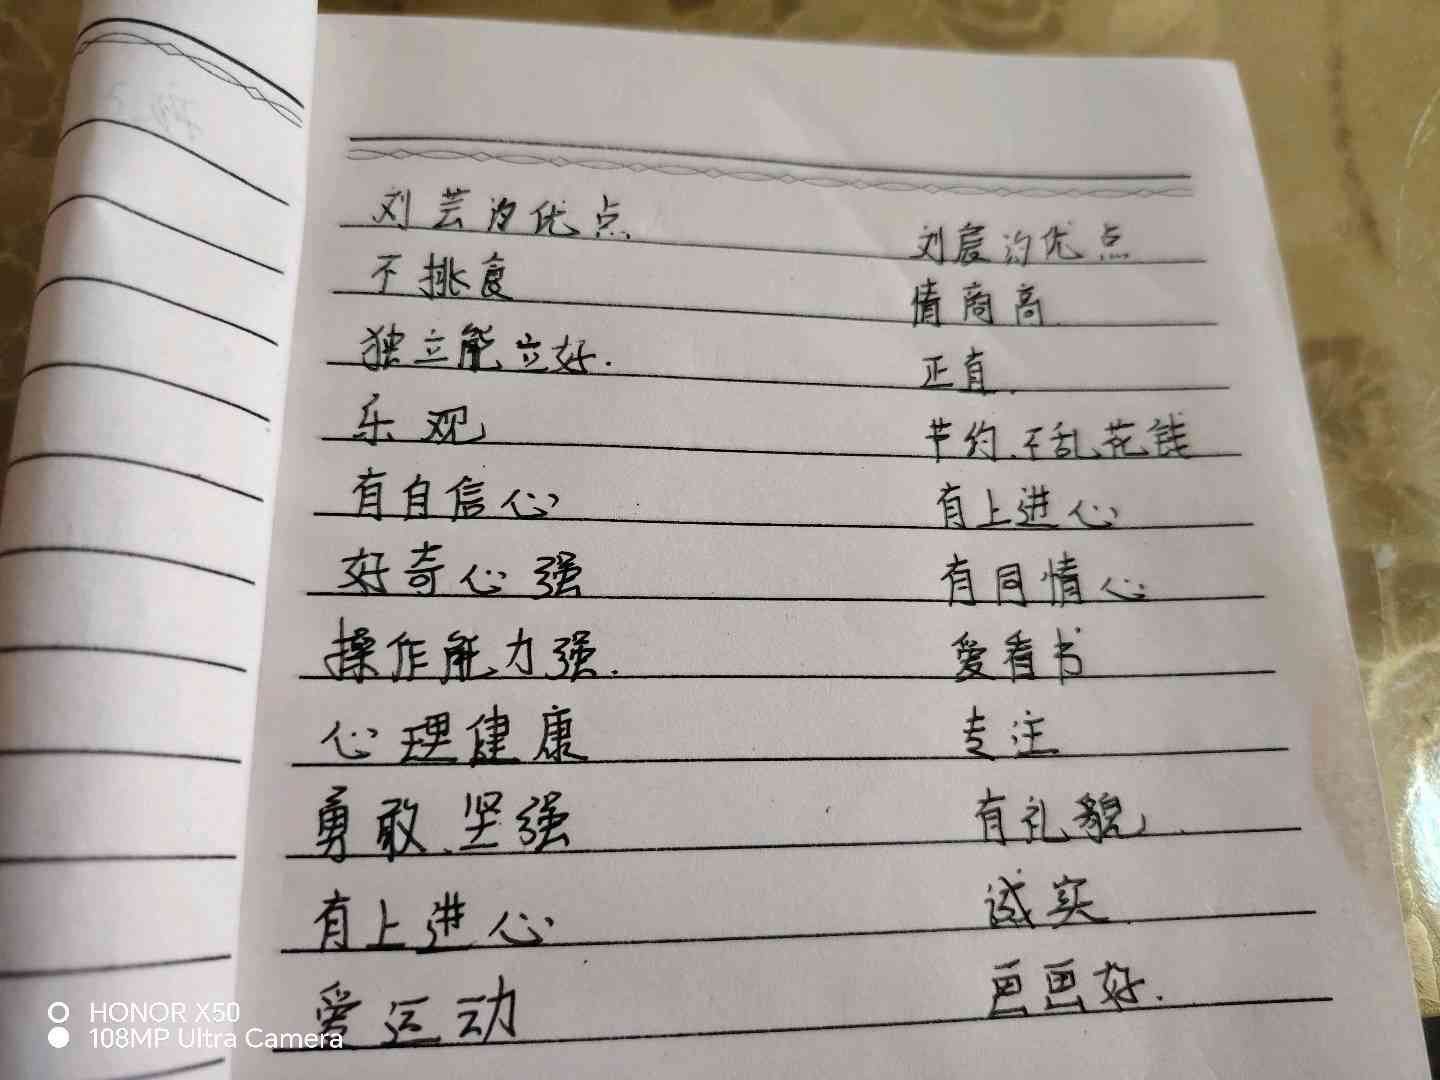 刘芸汐优点
不挑食
独立能立好.
乐观
有自信心
好奇心强
操作能力强.
心理健康
勇敢、坚强
有上进心
爱运动
刘宸汐优点
情商高
正直.
节约、不乱花钱
有上进心
有同情心
爱看书
专注
有礼貌.
诚实
画画好.
HONOR X50
108MP Ultra Camera